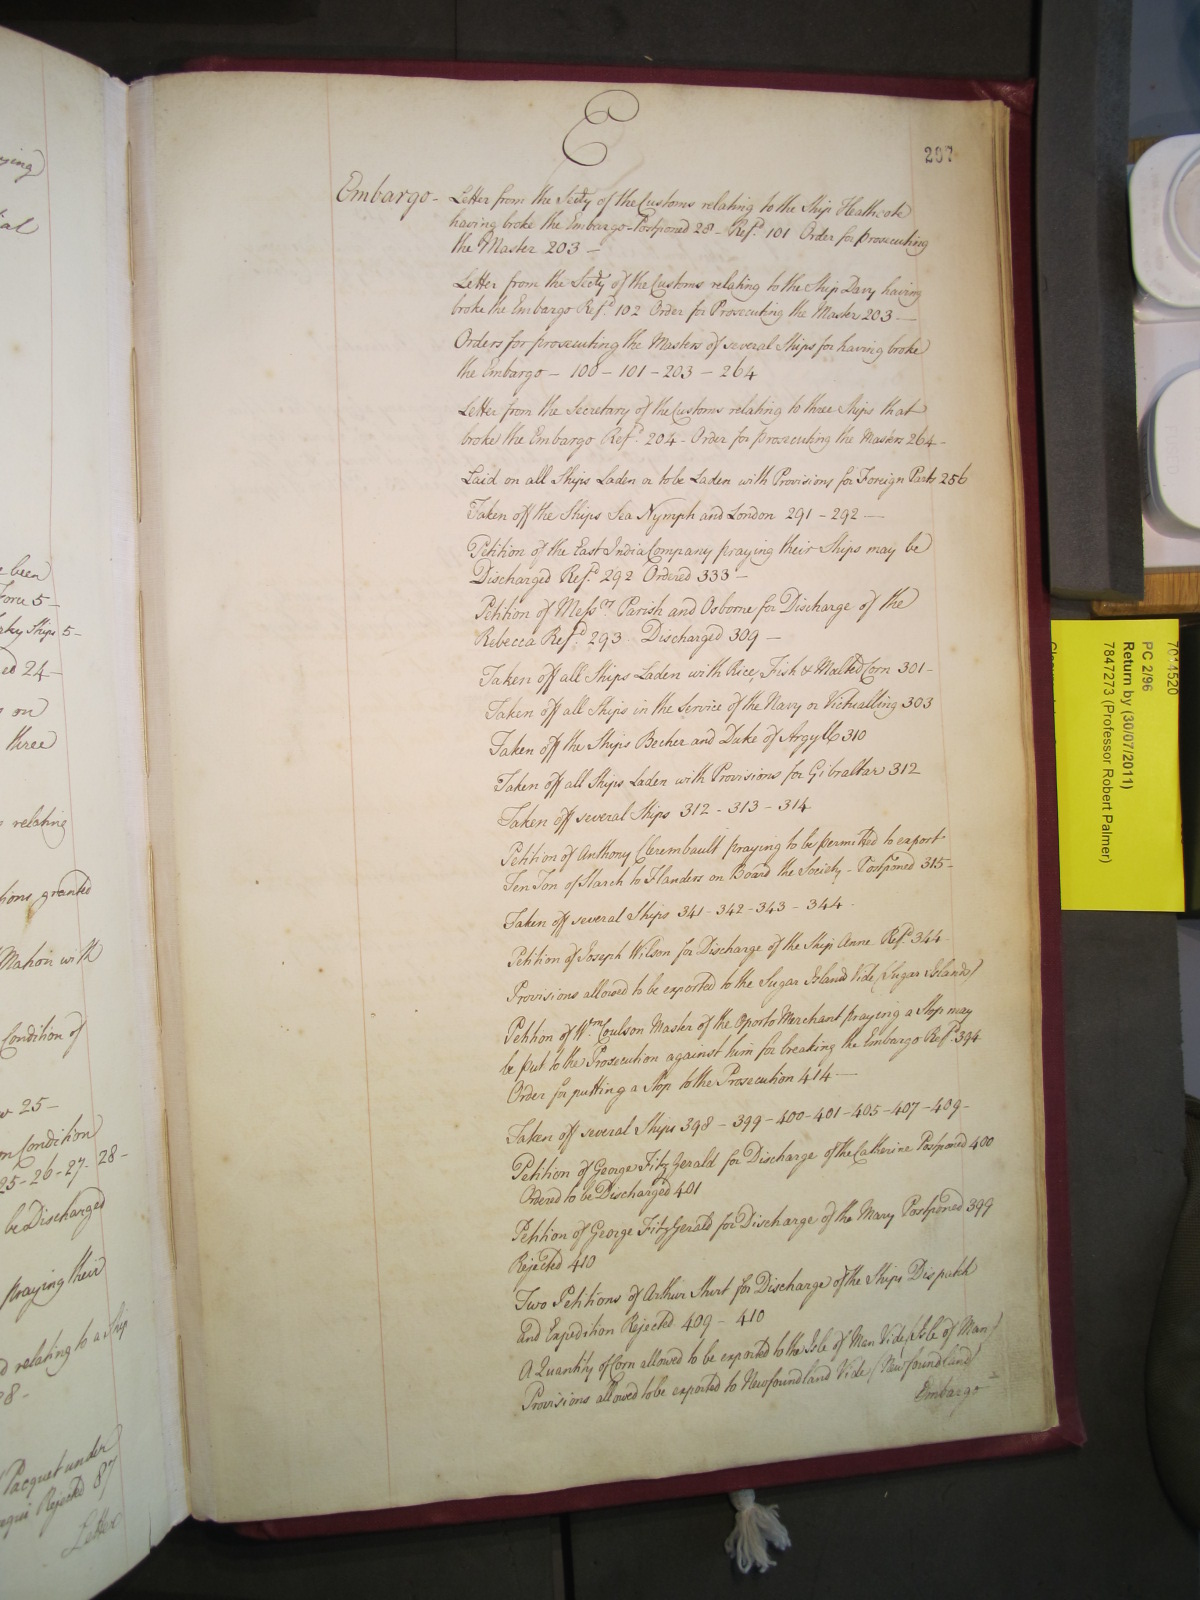 E
287
Embargo - Letter from the Secty of the Customs relating to the Ship Heathcote
having broke the Embargo - Postponed 28 - Refd. 101 Order for prosecuting
the Master 203 -
Letter from the Secty of the Customs relating to the Ship Davy having
broke the Embargo Refd. 102 Order for Prosecuting the Master 203 -
Orders for prosecuting the Masters of several Ships for having broke
the Embargo - 100 - 101 - 203 - 264
Letter from the Secretary of the Customs relating to three Ships that
broke the Embargo Refd. 204 - Order for prosecuting the Masters 264 -
Laid on all Ships Laden or to be Laden with Provisions for Foreign Parts 256
Taken off the Ships Sea Nymph and London 291 - 292 -
Petition of the East India Company praying their Ships may be
Discharged Refd. 292 Ordered 333 -
Petition of Messrs. Parish and Osborne for Discharge of the
Rebecca Refd. 293 Discharged 309 -
Taken off all Ships Laden with Rice, Fish & Malted Corn 301 -
Taken off all Ships in the Service of the Navy or Victualling 303
Taken off the Ships Becher and Duke of Argyll 310
Taken off all Ships Laden with Provisions for Gibraltar 312
Taken off several Ships 312 - 313 - 314
Petition of Anthony Clerembault praying to be permitted to export
Ten Ton of Starch to Flanders on Board the Society - Postponed 315 -
Taken off several Ships 341 - 342 - 343 - 344 -
Petition of Joseph Wilson for Discharge of the Ship Anne Refd. 344
Provisions allowed to be exported to the Sugar Islands Vide (Sugar Islands)
Petition of Wm. Coulson Master of the Oporto Merchant praying a Stop may
be put to the Prosecution against him for breaking the Embargo Refd. 394
Order for putting a Stop to the Prosecution 414 -
Taken off several Ships 398 - 399 - 400 - 401 - 405 - 407 - 409 -
Petition of George Fitz Gerald for Discharge of the Catherine Postponed 400
Ordered to be Discharged 401
Petition of George Fitz Gerald for Discharge of the Mary Postponed 399
Rejected 410
Two Petitions of Arthur Shirt for Discharge of the Ships Dispatch
and Expedition Rejected 409 - 410
A Quantity of Corn allowed to be exported to the Isle of Man Vide (Isle of Man)
Provisions allowed to be exported to Newfoundland Vide (Newfoundland)
Embargo
been
5 -
Ships 5 -
24 -
on
three
relating
granted
Mahon with
Condition of
25 -
Condition
25 - 26 - 27 - 28 -
be Discharged
praying their
relating to a Ship
Pacquet under
Rejected 87
Letter
7014520
PC 2/96
Return by (30/07/2011)
7847273 (Professor Robert Palmer)